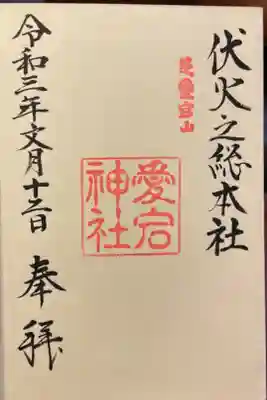 伏火之総本社
愛宕
神社
令和三年文月
奉拝